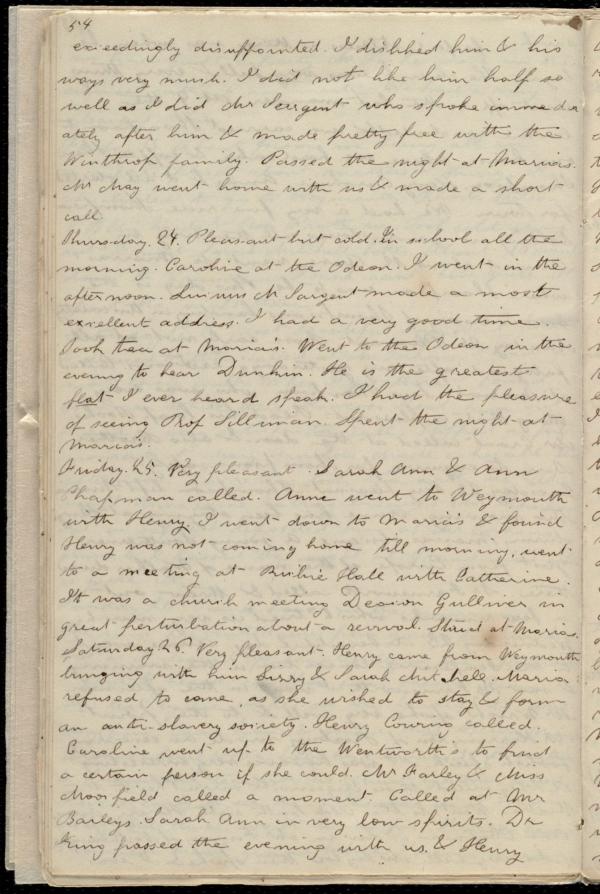 54
exceedingly disappointed. I disliked him & his
ways very much. I did not like him half so
well as I did Mr Sargent who spoke immedi
ately after him & made pretty free with the
Winthrop family. Passed the night at Maria's.
Mr May went home with us & made a short
call
Thursday. 24. Pleasant but cold. In school all the
morning. Caroline at the Odeon. I went in the
afternoon. Lucius M Sargent made a most
excellent address. I had a very good time.
Took tea at Maria's. Went to the Odeon in the
evening to hear Dunkin. He is the greatest
flat I ever heard speak. I had the pleasure
of seeing Prof Silliman. Spent the night at
Maria's.
Friday. 25. Very pleasant. Sarah Ann & Ann
Chapman called. Anne went to Weymouth
with Henry. I went down to Maria's & found
Henry was not coming home till morning, went
to a meeting at Ritchie Hall with Catherine.
It was a church meeting Deacon Gulliver in
great perturbation about a revival. Slept at Maria's.
Saturday 26. Very pleasant. Henry came from Weymouth
bringing with him & Sarah Mitchell. Maria
refused to come, as she wished to stay & form
an anti-slavery society. Henry Cowing called.
Caroline went up to the Wentworth's to find
a certain person if she could. Mr Farley & Miss
Moorfield called a moment. Called at Mr
Baileys. Sarah Ann in very low spirits. Dr
King passed the evening with us, & Henry